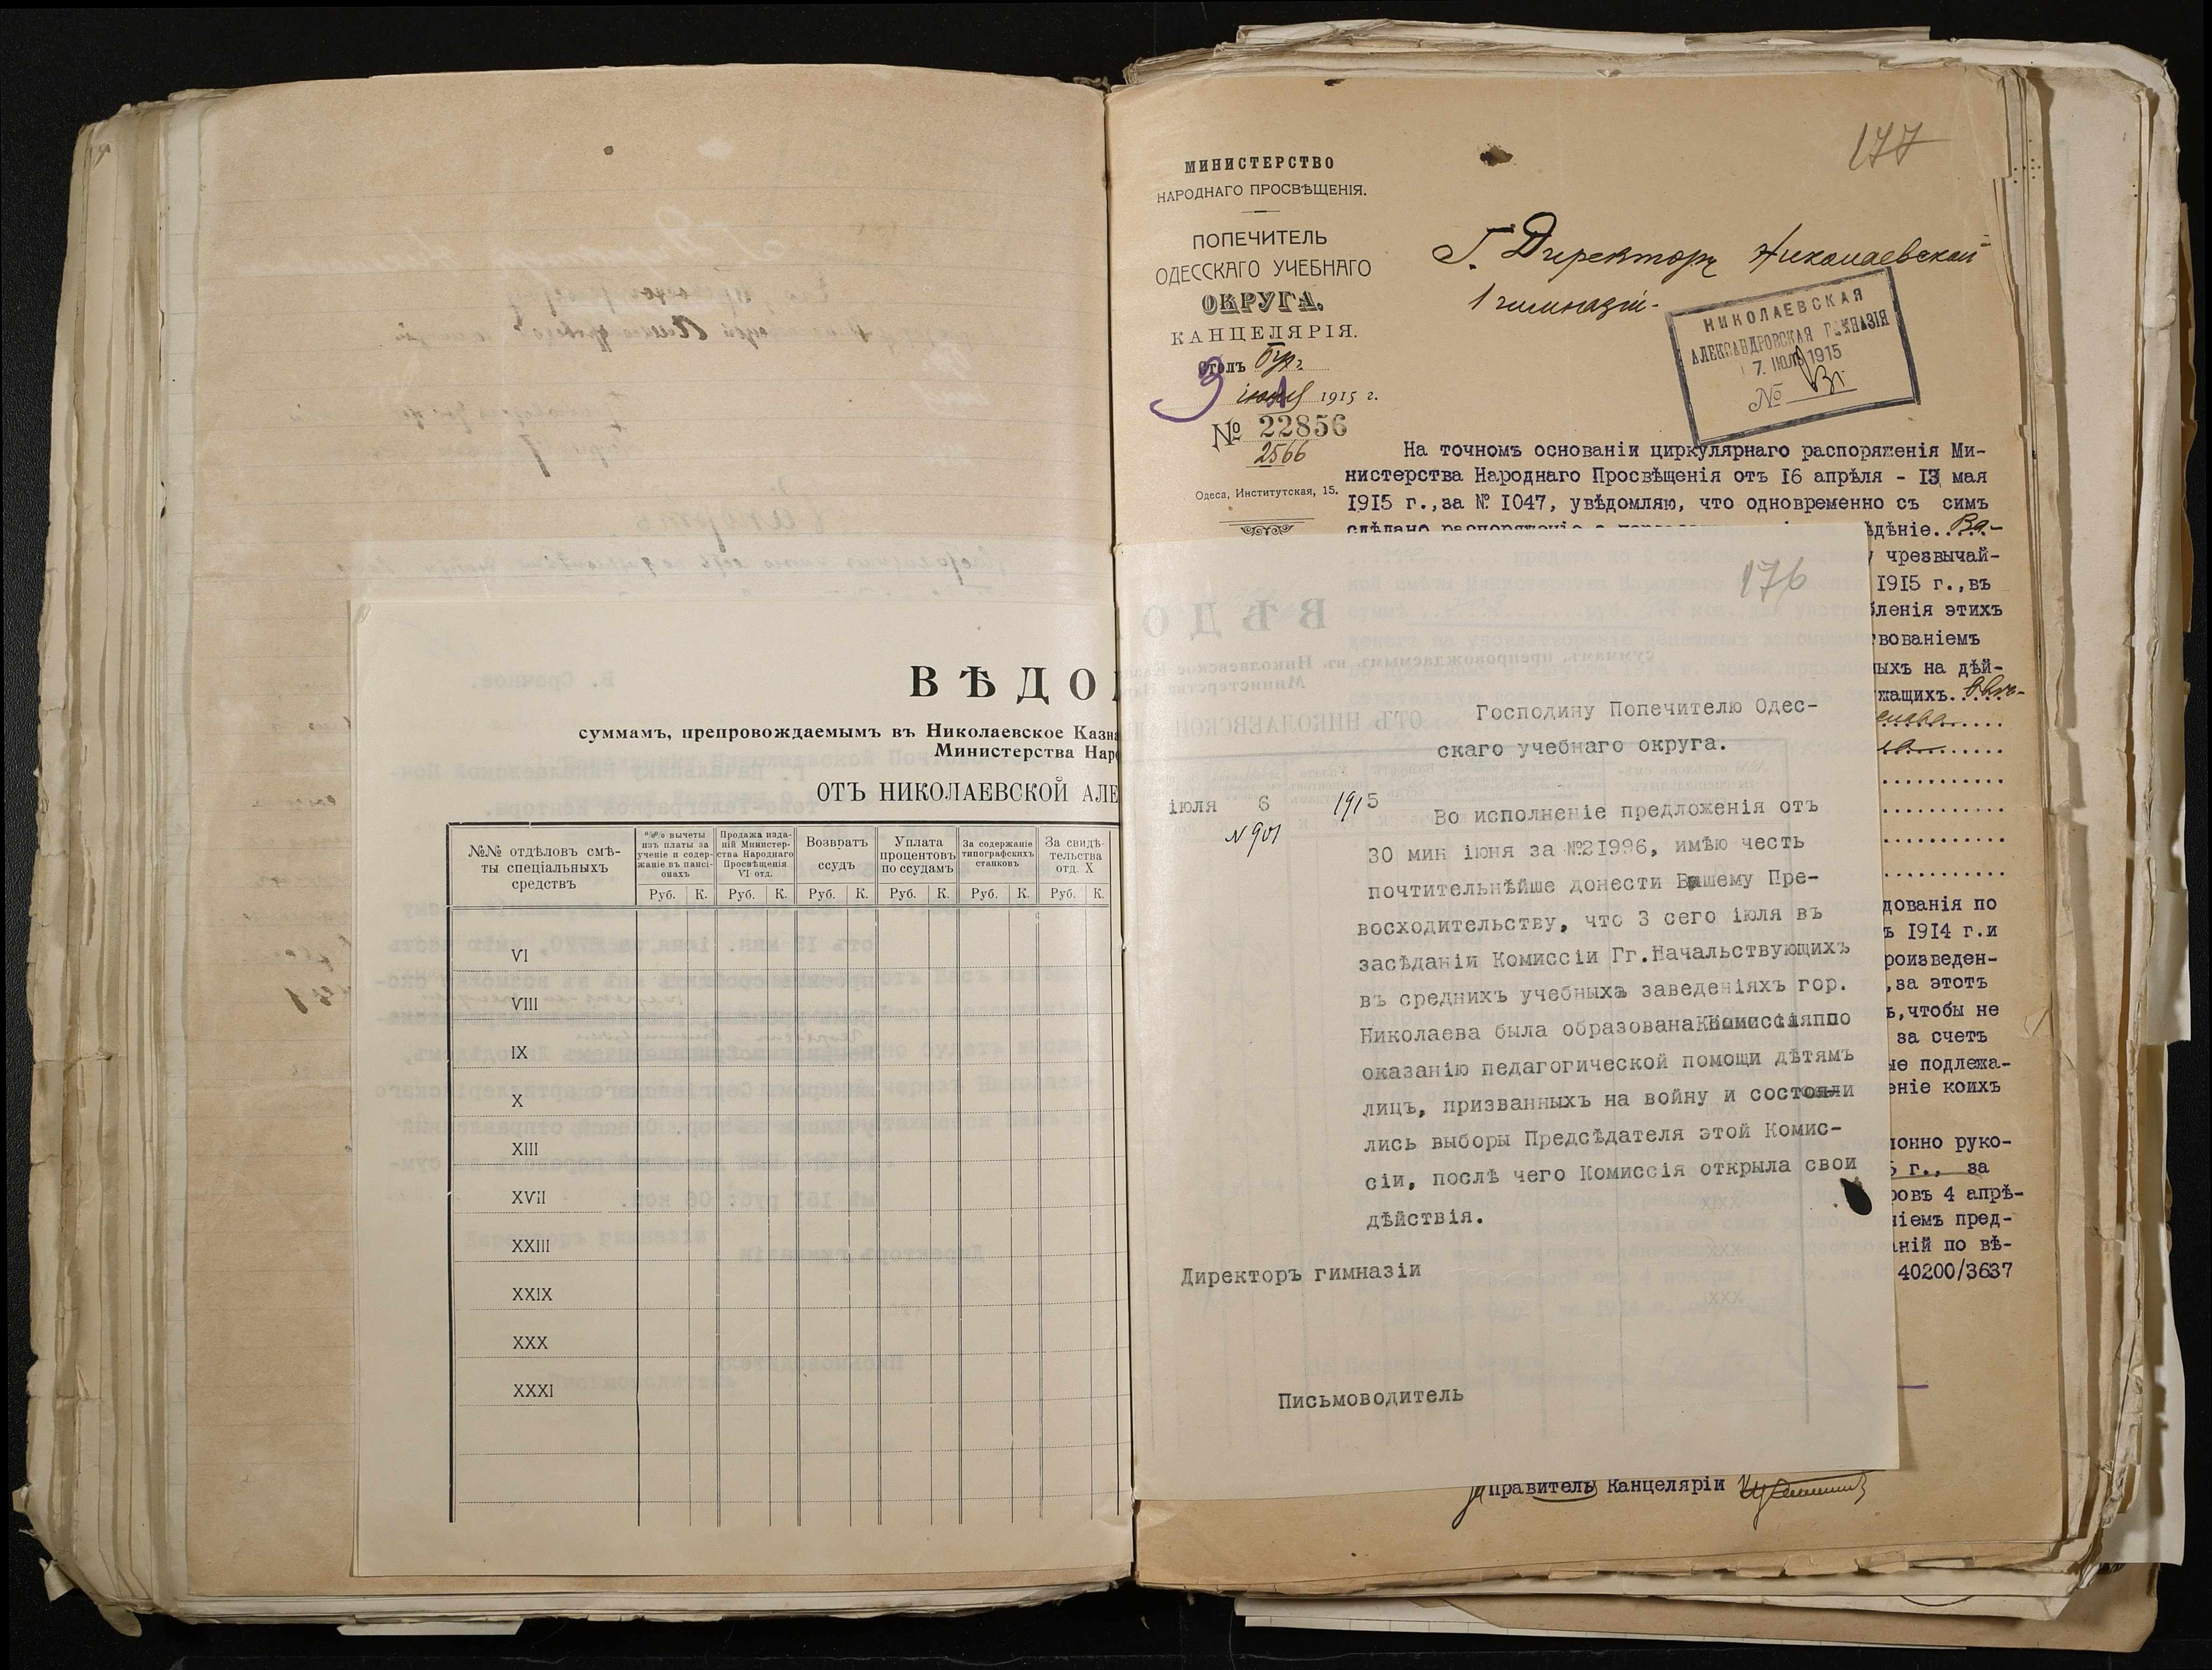 ВѢДО
суммамъ, препровождаемымъ въ Николаевское Казна
Министерства Наро
ОТЪ НИКОЛАЕВСКОЙ АЛЕ
№№ отдѣловъ смѣ-
ты спеціальныхъ
средствъ
% вычеты
изъ платы за
ученіе и содер-
жаніе въ пансі-
онахъ
Руб. К.
Продажа изда-
ній Министер-
ства Народнаго
Просвѣщенія
VI отд.
Руб. К.
Возвратъ
ссудъ
Руб. К.
Уплата
процентовъ
по ссудамъ
Руб. К.
За содержаніе
типографскихъ
станковъ
Руб. К.
За свидѣ-
тельства
отд. X
Руб. К.
VI
VIII
IX
X
XIII
XVII
XXIII
XXIX
XXX
XXXI
177
МИНИСТЕРСТВО
НАРОДНАГО ПРОСВѢЩЕНІЯ.
ПОПЕЧИТЕЛЬ
ОДЕССКАГО УЧЕБНАГО
ОКРУГА.
КАНЦЕЛЯРІЯ.
Столъ
3 1915 г.
№ 22856
2566
Одеса, Институтская, 15.
Г. Директору Николаевской
1 гимназіи.
НИКОЛАЕВСКАЯ
АЛЕКСАНДРОВСКАЯ ГИМНАЗІЯ
7. ІЮЛ 1915
№
На точномъ основаніи циркулярнаго распоряженія Ми-
нистерства Народнаго Просвѣщенія отъ 16 апрѣля - 13 мая
1915 г.,за № 1047, увѣдомляю, что одновременно съ симъ
сдѣлано распоряженіе ѣдѣніе. Ва-
чрезвычай-
1915 г.,въ
бленія этихъ
вованіемъ
ныхъ на дѣй-
жащихъ.
дованія по
ъ 1914 г.и
роизведен-
,за этотъ
ь,чтобы не
за счетъ
ые подлежа-
еніе коихъ
іонно руко-
5 г., за
ровъ 4 апрѣ-
ніемъ пред-
аній по вѣ-
40200/3637
Правитель Канцеляріи
176
Господину Попечителю Одес-
скаго учебнаго округа.
іюля 6 1915
№ 901
Во исполненіе предложенія отъ
30 мин іюня за №21996, имѣю честь
почтительнѣйше донести Вашему Пре-
восходительству, что 3 сего іюля въ
засѣданіи Комиссіи Гг.Начальствующихъ
въ среднихъ учебныхъ заведеніяхъ гор.
Николаева была образована Комиссія по
оказанію педагогической помощи дѣтямъ
лицъ, призванныхъ на войну и состояли
лись выборы Предсѣдателя этой Комис-
сіи, послѣ чего Комиссія открыла свои
дѣйствія.
Директоръ гимназіи
Письмоводитель